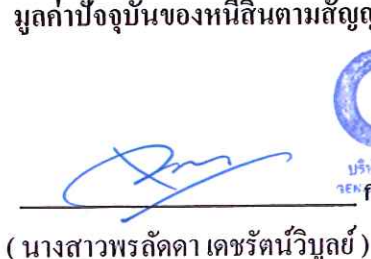 มูลค่าปัจจุบันของหนี้สินตามสัญ
บริ
( นางสาวพรลัดดา เดชรัตน์วิบูลย์ )